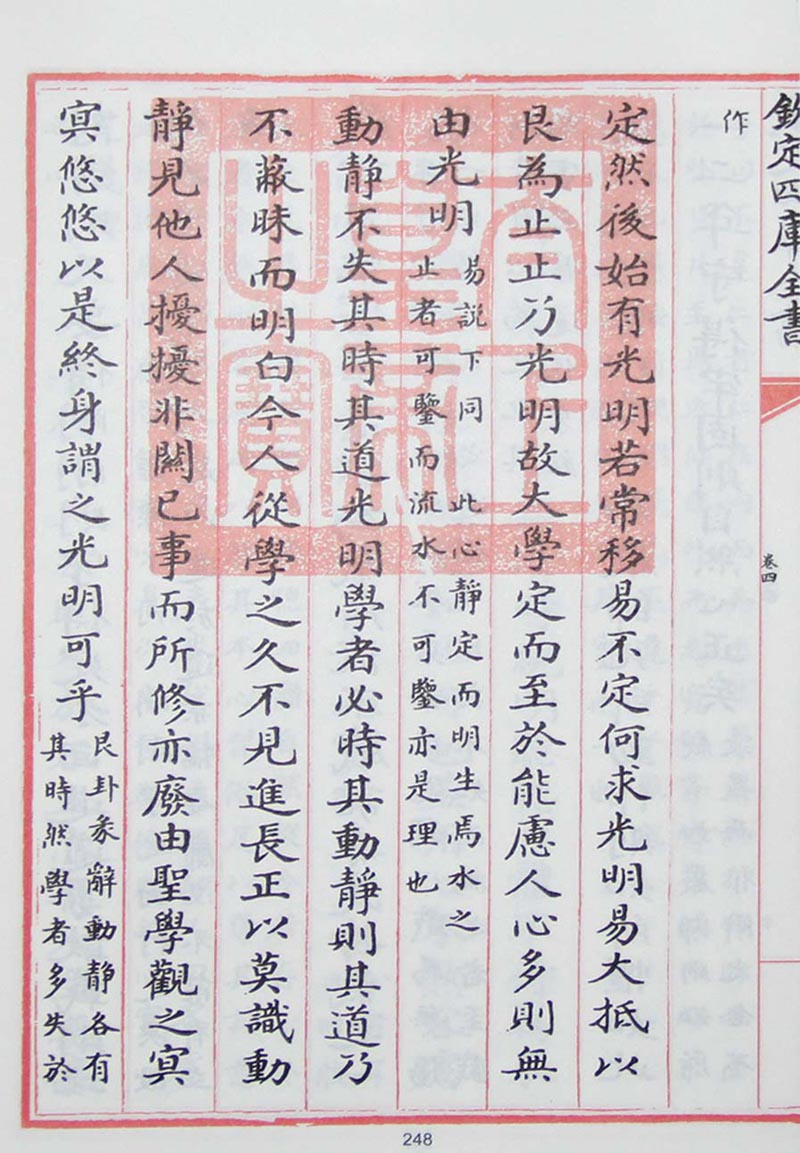 欽定四庫全書
卷四
作
定然後始有光明若常移易不定何求光明易大抵以
艮為止止乃光明故大學定而至於能慮人心多則無
由光明
易說下同 此心靜定而明生焉水之
止者可鑒而流水不可鑒亦是理也
動靜不失其時其道光明學者必時其動靜則其道乃
不蔽昧而明白今人從學之久不見進長正以莫識動
靜見他人擾擾非關己事而所修亦廢由聖學觀之冥
冥悠悠以是終身謂之光明可乎
艮卦彖辭動靜各有
其時然學者多失於
248